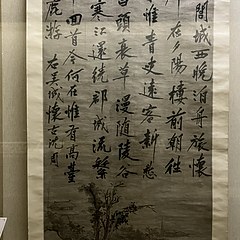 閶城西晚泊舟旅懷
在夕陽樓前朝往
惟青史遠客新愁
白頭衰草漫隨陵谷
寒江還繞郡城流繁
回首今何在惟有高臺
鹿游 右吳城懷古沈周